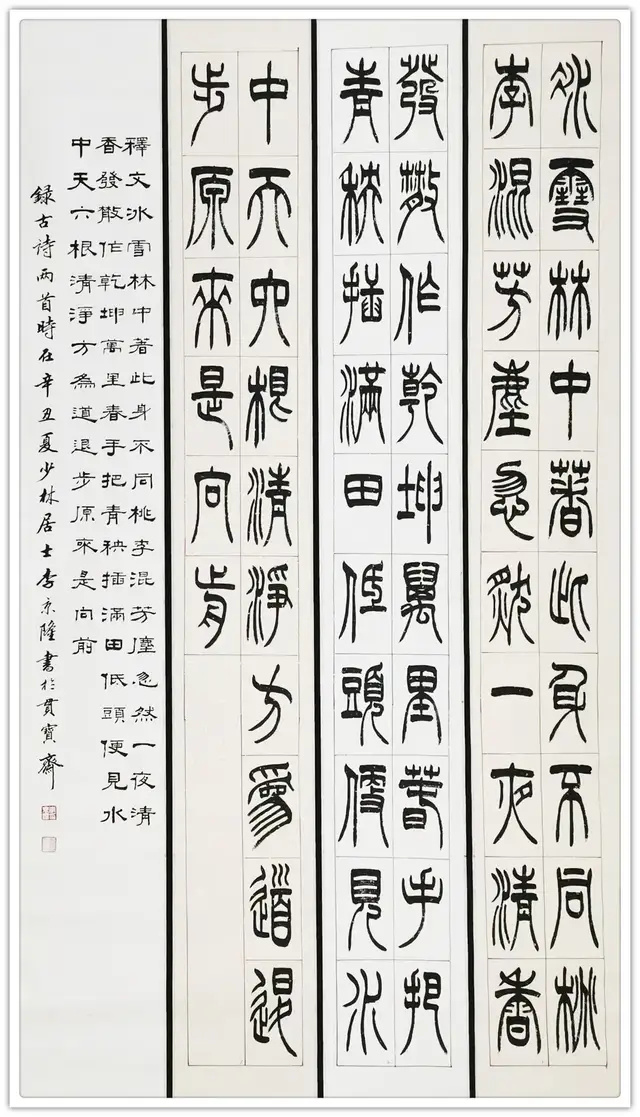 冰雪林中著此身不同桃
李混芳塵忽然一夜清香
發散作乾坤萬里春手把
青秧插滿田低頭便見水
中天六根清淨方為道退
步原來是向前
釋文冰雪林中著此身不同桃李混芳塵忽然一夜清
香發散作乾坤萬里春手把青秧插滿田低頭便見水
中天六根清淨方為道退步原來是向前
錄古詩兩首時在辛丑夏少林居士李京隆書於貫寶齋